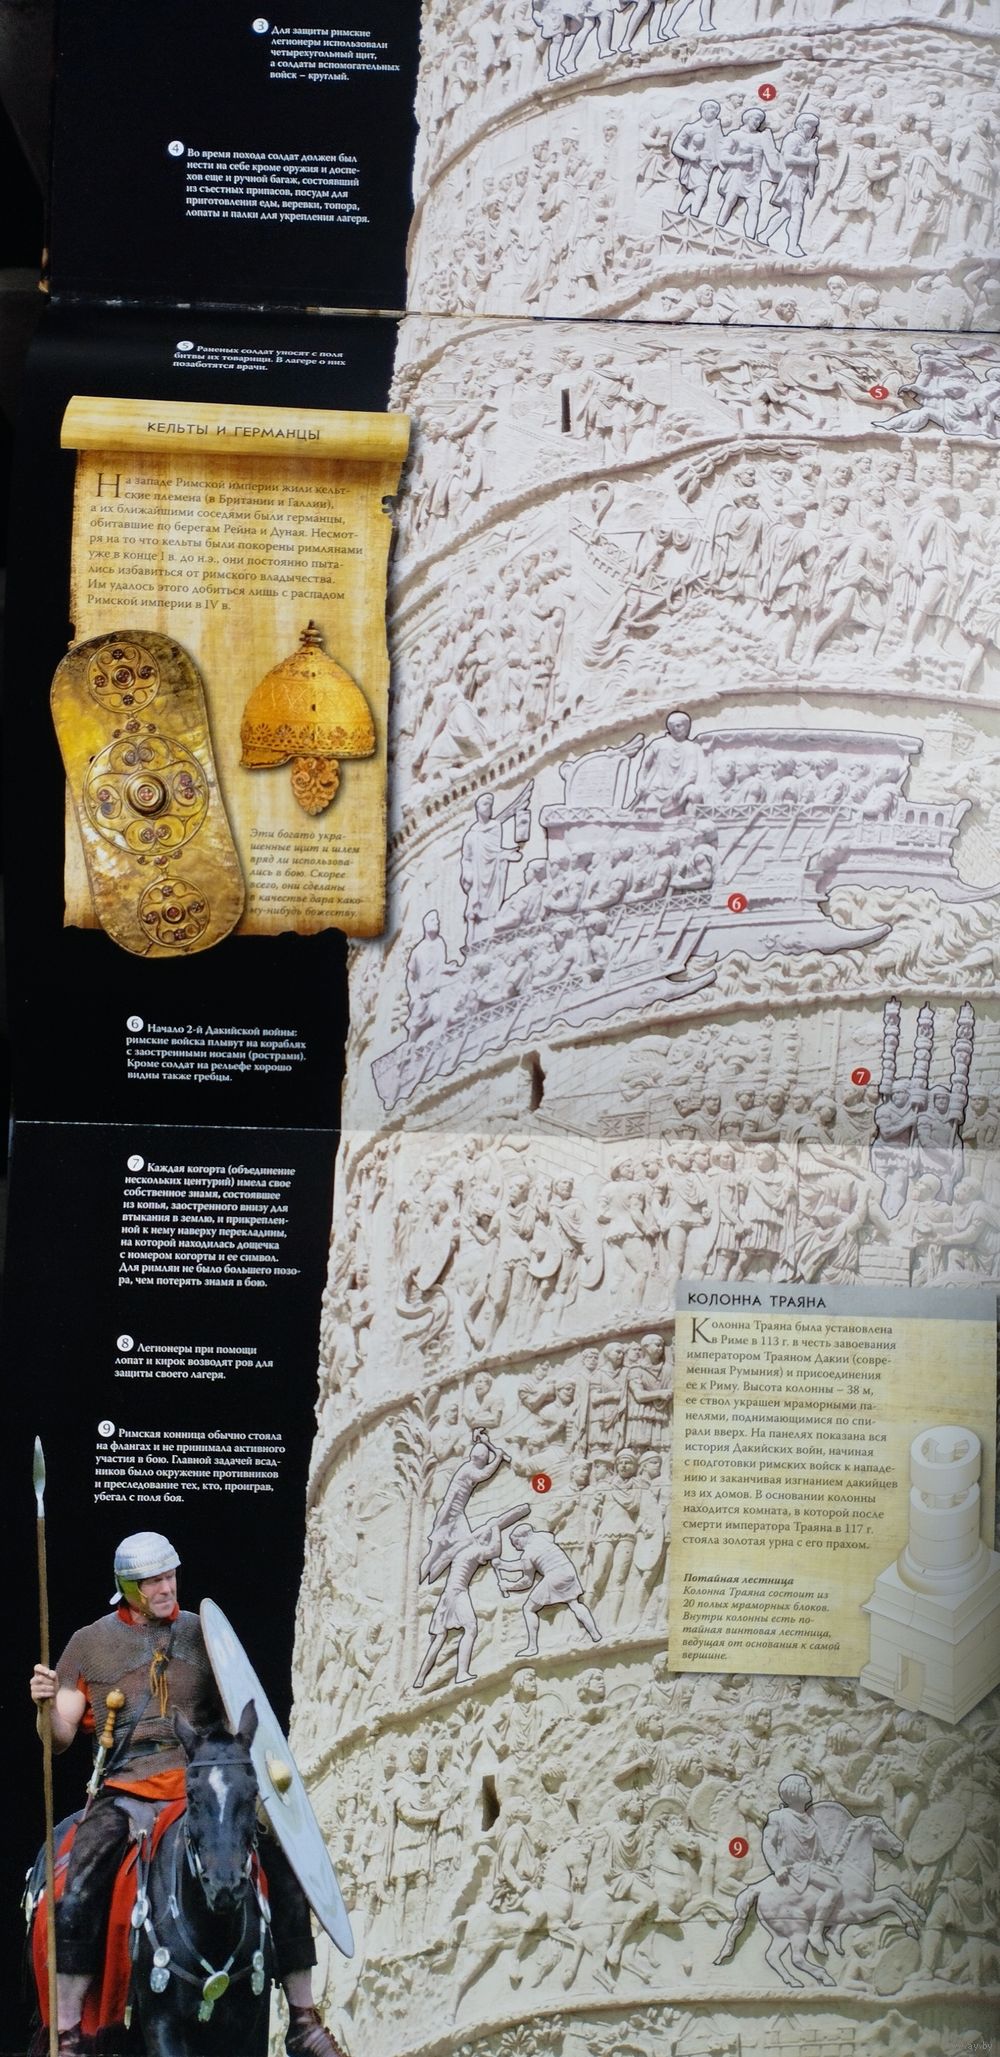 3 Для защиты римские
легионеры использовали
четырехугольный щит,
а солдаты вспомогательных
войск – круглый.
4 Во время похода солдат должен был
нести на себе кроме оружия и доспе-
хов еще и ручной багаж, состоявший
из съестных припасов, посуды для
приготовления еды, веревки, топора,
лопаты и палки для укрепления лагеря.
4
5 Раненых солдат уносят с поля
битвы их товарищи. В лагере о них
позаботятся врачи.
5
КЕЛЬТЫ И ГЕРМАНЦЫ
На западе Римской империи жили кельт-
ские племена (в Британии и Галлии),
а их ближайшими соседями были германцы,
обитавшие по берегам Рейна и Дуная. Несмот-
ря на то что кельты были покорены римлянами
уже в конце I в. до н.э., они постоянно пыта-
лись избавиться от римского владычества.
Им удалось этого добиться лишь с распадом
Римской империи в IV в.
Эти богато укра-
шенные щит и шлем
вряд ли использова-
лись в бою. Скорее
всего, они сделаны
в качестве дара како-
му-нибудь божеству.
6
6 Начало 2-й Дакийской войны:
римские войска плывут на кораблях
с заостренными носами (рострами).
Кроме солдат на рельефе хорошо
видны также гребцы.
7
7 Каждая когорта (объединение
нескольких центурий) имела свое
собственное знамя, состоявшее
из копья, заостренного внизу для
втыкания в землю, и прикреплен-
ной к нему наверху перекладины,
на которой находилась дощечка
с номером когорты и ее символ.
Для римлян не было большего позо-
ра, чем потерять знамя в бою.
8 Легионеры при помощи
лопат и кирок возводят ров для
защиты своего лагеря.
9 Римская конница обычно стояла
на флангах и не принимала активного
участия в бою. Главной задачей всад-
ников было окружение противников
и преследование тех, кто, проиграв,
убегал с поля боя.
КОЛОННА ТРАЯНА
Колонна Траяна была установлена
в Риме в 113 г. в честь завоевания
императором Траяном Дакии (совре-
менная Румыния) и присоединения
ее к Риму. Высота колонны – 38 м,
ее ствол украшен мраморными па-
нелями, поднимающимися по спи-
рали вверх. На панелях показана вся
история Дакийских войн, начиная
с подготовки римских войск к нападе-
нию и заканчивая изгнанием дакийцев
из их домов. В основании колонны
находится комната, в которой после
смерти императора Траяна в 117 г.
стояла золотая урна с его прахом.
Потайная лестница
Колонна Траяна состоит из
20 полых мраморных блоков.
Внутри колонны есть по-
тайная винтовая лестница,
ведущая от основания к самой
вершине.
8
9